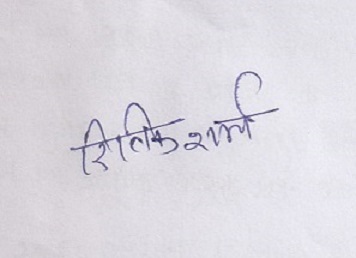 रितिक शर्मा